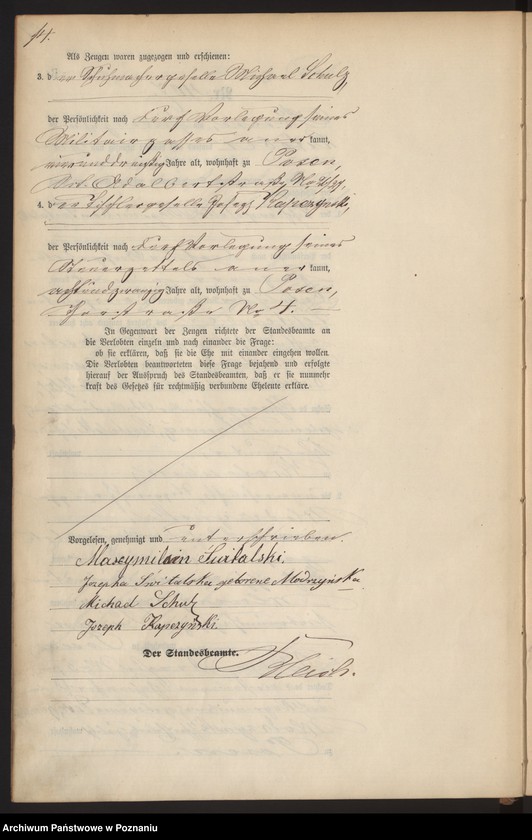 Als Zeugen waren zugezogen und erschienen:
3. der Schuhmachergeselle Michael Schulz,
der Persönlichkeit nach durch Vorlegung seines
Militairpasses anerkannt,
vierunddreißig Jahre alt, wohnhaft zu Posen,
St. Adalbertstraße No 26/27,
4. der Tischlergeselle Joseph Kapczynski,
der Persönlichkeit nach durch Vorlegung seines
Steuerzettels anerkannt,
achtundzwanzig Jahre alt, wohnhaft zu Posen,
No 4.
In Gegenwart der Zeugen richtete der Standesbeamte an
die Verlobten einzeln und nach einander die Frage:
ob sie erklären, daß sie die Ehe mit einander eingehen wollen.
Die Verlobten beantworteten diese Frage bejahend und erfolgte
hierauf der Ausspruch des Standesbeamten, daß er sie nunmehr
kraft des Gesetzes für rechtmäßig verbundene Eheleute erkläre.
Vorgelesen, genehmigt und unterschrieben.
Maxymilian Świtalski.
Jozepha Świtalska geborene Modrzyńska
Michael Schulz
Jozeph Kapczyński.
Der Standesbeamte.
Archiwum Państwowe w Poznaniu